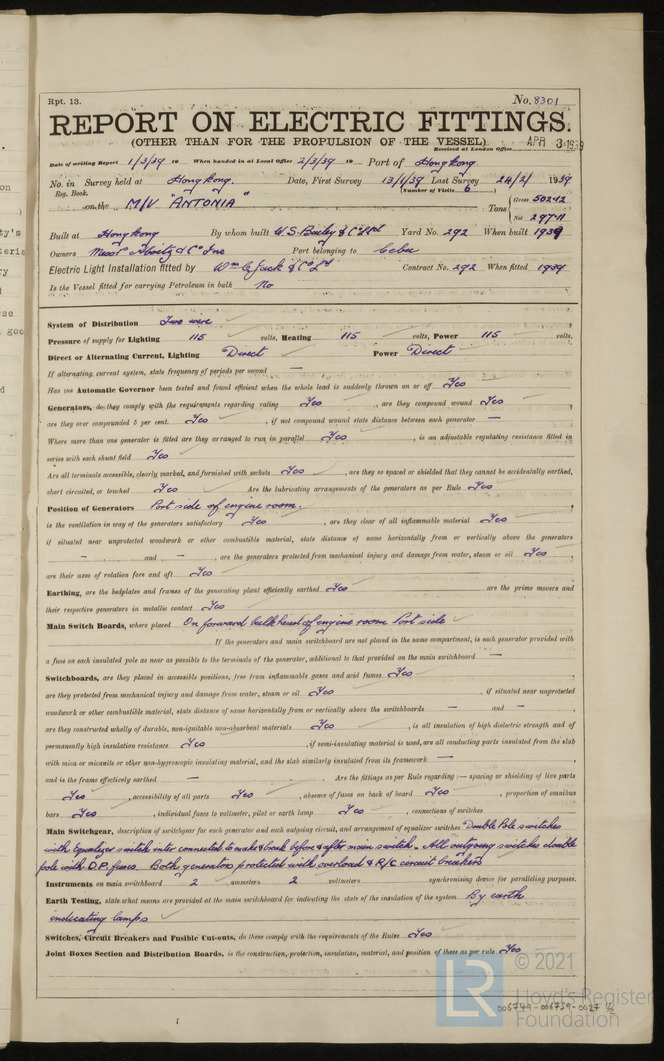 Rpt. 13.
No. 8301
REPORT ON ELECTRIC FITTINGS.
(OTHER THAN FOR THE PROPULSION OF THE VESSEL)
Received at London Office APR 3 - 1939
Date of writing Report 1/3/39 19 When handed in at Local Office 2/3/39 19 Port of Hongkong
No. in Survey held at Hongkong. Date, First Survey 13/1/39 Last Survey 24/2/ 1939
Reg. Book. (Number of Visits 6)
on the M/V "ANTONIA" Tons { Gross 502.12
Net 297.11
Built at Hongkong By whom built W. S. Bailey & Co Ltd Yard No. 292 When built 1939
Owners Messrs Aboitiz & Co Inc Port belonging to Cebu
Electric Light Installation fitted by Wm C Jack & Co Ld Contract No. 292 When fitted 1939
Is the Vessel fitted for carrying Petroleum in bulk No
System of Distribution Two wire
Pressure of supply for Lighting 115 volts, Heating 115 volts, Power 115 volts.
Direct or Alternating Current, Lighting Direct Power Direct
If alternating current system, state frequency of periods per second —
Has the Automatic Governor been tested and found efficient when the whole load is suddenly thrown on or off Yes
Generators, do they comply with the requirements regarding rating Yes , are they compound wound Yes
are they over compounded 5 per cent. Yes , if not compound wound state distance between each generator —
Where more than one generator is fitted are they arranged to run in parallel Yes , is an adjustable regulating resistance fitted in
series with each shunt field Yes
Are all terminals accessible, clearly marked, and furnished with sockets Yes , are they so spaced or shielded that they cannot be accidentally earthed,
short circuited, or touched Yes Are the lubricating arrangements of the generators as per Rule Yes
Position of Generators Port side of engine room.
is the ventilation in way of the generators satisfactory Yes , are they clear of all inflammable material Yes
if situated near unprotected woodwork or other combustible material, state distance of same horizontally from or vertically above the generators
— and — , are the generators protected from mechanical injury and damage from water, steam or oil Yes ,
are their axes of rotation fore and aft Yes
Earthing, are the bedplates and frames of the generating plant efficiently earthed Yes are the prime movers and
their respective generators in metallic contact Yes
Main Switch Boards, where placed On forward bulkhead of engine room Port side
If the generators and main switchboard are not placed in the same compartment, is each generator provided with
a fuse on each insulated pole as near as possible to the terminals of the generator, additional to that provided on the main switchboard —
Switchboards, are they placed in accessible positions, free from inflammable gases and acid fumes Yes
are they protected from mechanical injury and damage from water, steam or oil Yes , if situated near unprotected
woodwork or other combustible material, state distance of same horizontally from or vertically above the switchboards — and — ,
are they constructed wholly of durable, non-ignitable non-absorbent materials Yes , is all insulation of high dielectric strength and of
permanently high insulation resistance Yes , if semi-insulating material is used, are all conducting parts insulated from the slab
with mica or micanite or other non-hygroscopic insulating material, and the slab similarly insulated from its framework — ,
and is the frame effectively earthed — . Are the fittings as per Rule regarding :— spacing or shielding of live parts
Yes , accessibility of all parts Yes , absence of fuses on back of board Yes , proportion of omnibus
bars Yes , individual fuses to voltmeter, pilot or earth lamp Yes , connections of switches
Main Switchgear, description of switchgear for each generator and each outgoing circuit, and arrangement of equalizer switches Double Pole switches
with Equalizer switch inter connected to make & break before & after main switch. All outgoing switches double
pole with D.P. fuses. Both generators protected with overload & R/C circuit breakers
Instruments on main switchboard 2 ammeters 2 voltmeters synchronising device for paralleling purposes.
Earth Testing, state what means are provided at the main switchboard for indicating the state of the insulation of the system By earth
indicating lamps
Switches, Circuit Breakers and Fusible Cut-outs, do these comply with the requirements of the Rules Yes
Joint Boxes Section and Distribution Boards, is the construction, protection, insulation, material, and position of these as per rule Yes
LR © 2021
Lloyd's Register
Foundation
006749-006759-0027 1/2